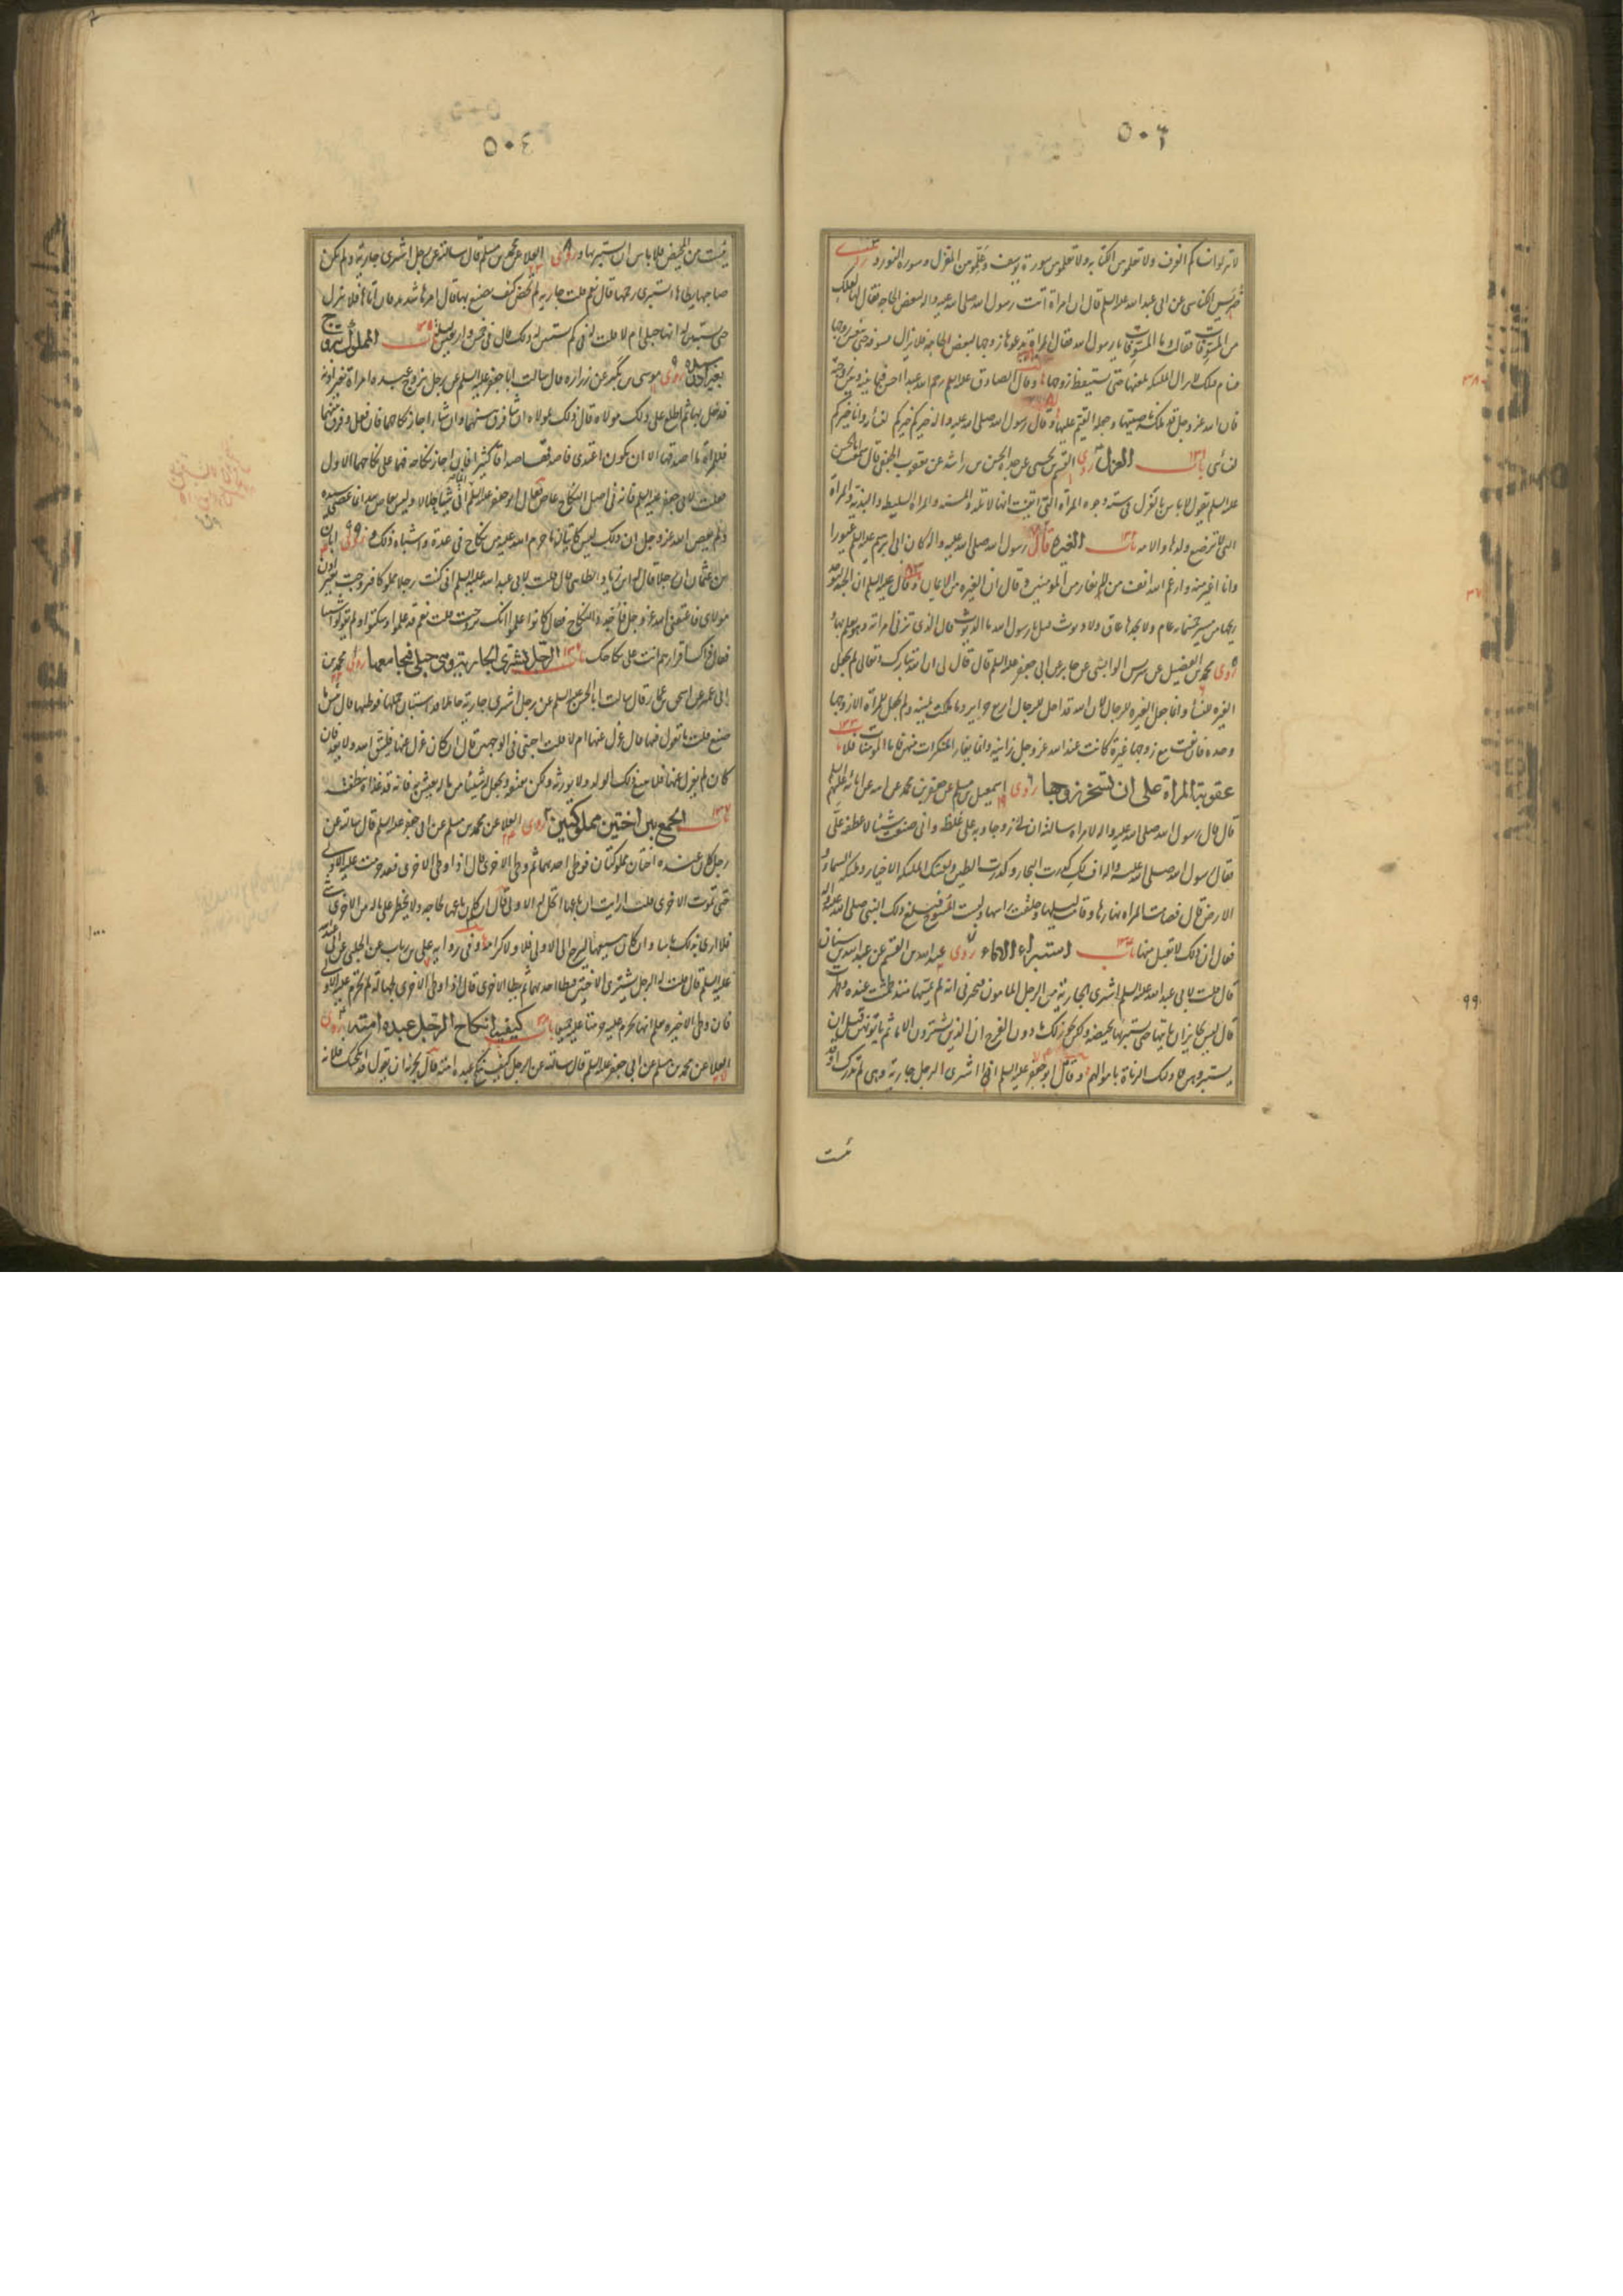 ٥٠٣
لا تنزلوا نساءكم الغرف ولا تعلموهن الكتابة ولا تعلموهن سورة يوسف وعلموهن المغزل وسورة النور و روى
ضريس الكناسي عن ابي عبد الله عليه السلم قال ان امراة اتت رسول الله صلى الله عليه واله لبعض الحاجة فقال لها لعلك
من المسوفات فقالت وما المسوفات يا رسول الله فقال المراة يدعوها زوجها لبعض الحاجة فلا تزال تسوفه حتى ينعس زوجها
فينام فتلك لا تزال الملئكة تلعنها حتى يستيقظ زوجها وقال الصادق عليه السلم رحم الله عبدا احسن فيما بينه وبين زوجته
فان الله عز وجل قد ملكه ناصيتها وجعله القيم عليها وقال رسول الله صلى الله عليه واله خيركم خيركم لنسائه وانا خيركم
لنسائي باب ١٣١ العزل روى القسم بن يحيى عن جده الحسن بن راشد عن يعقوب الجعفي قال سمعت ابا الحسن
عليه السلم يقول لا باس بالعزل في ستة وجوه المراة التي ايقنت انها لا تلد والمسنة والمراة السليطة والبذية والمراة
التي لا ترضع ولدها والامة باب ١٣٢ الغيرة قال رسول الله صلى الله عليه واله كان ابي ابرهيم عليه السلم غيورا
وانا اغير منه وارغم الله انف من لا يغار من المؤمنين و قال ان الغيرة من الايمان وقال عليه السلم ان الجنة ليوجد
ريحها من مسيرة خمسمائة عام ولا يجدها عاق ولا ديوث قيل يا رسول الله وما الديوث قال الذي تزني امراته وهو يعلم بها و
روى محمد بن الفضيل عن شريس الوابشي عن جابر عن ابي جعفر عليه السلم قال قال لي ان الله تبارك وتعالى لم يجعل
الغيرة للنساء وانما جعل الغيرة للرجال لان الله قد احل للرجال اربع حراير وما ملكت يمينه ولم يجعل للمراة الا زوجها
وحده فان بغت مع زوجها غيره كانت عند الله عز وجل زانية وانما يغار المنكرات منهن فاما المؤمنات فلا باب ١٣٣
عقوبة المراة على ان تسحر زوجها روى اسمعيل بن مسلم عن جعفر بن محمد عن ابيه عن ابائه عليهم السلم
قال قال رسول الله صلى الله عليه واله لامراة سالته ان لي زوجا وبه علي غلظة واني صنعت شيئا لاعطفه علي
فقال رسول الله صلى الله عليه واله اف لك كدرت البحار وكدرت الطين ولعنتك الملئكة الاخيار وملئكة السماء و
الارض قال فصامت المراة نهارها وقامت ليلها وحلقت راسها ولبست المسوح فبلغ ذلك النبي صلى الله عليه واله
فقال ان ذلك لا يقبل منها باب ١٣٤ استبراء الاماء روى عبد الله بن القسم عن عبد الله بن سنان
قال قلت لابي عبد الله عليه السلم اشتري الجارية من الرجل المامون فيخبرني انه لم يمسها منذ طمثت عنده وطهرت
قال ليس بجايز ان تاتيها حتى تستبرئها بحيضة ولكن يجوز لك ما دون الفرج ان الذين يشترون الاماء ثم ياتونهن قبل ان
يستبرؤهن فاولئك الزناة باموالهم وقال ابو جعفر عليه السلم اذا اشترى الرجل جارية وهي لم تدرك او قد
يئست
٥٠٤
يئست من المحيض فلا باس ان لا يستبرئها و روى العلا عن محمد بن مسلم قال سالته عن رجل اشترى جارية ولم يكن
صاحبها يطاها استبرئ رحمها قال نعم قلت جارية لم تحض كيف يصنع بها قال امرها شديد فان اتاها فلا ينزل
حتى يستبين له انها حبلى ام لا قلت له في كم يستبين له ذلك قال في خمس واربعين ليلة باب ١٣٥ المملوك يتزوج
بغير اذن سيده روى موسى بن بكير عن زرارة قال سالت ابا جعفر عليه السلم عن رجل تزوج عبده امراة بغير اذنه
فدخل بها ثم اطلع على ذلك مولاه قال ذلك لمولاه ان شاء فرق بينهما وان شاء اجاز نكاحهما فان فعل وفرق بينهما
فللمراة ما اصدقها الا ان يكون اعتدى فاصدقها صداقا كثيرا فان اجاز نكاحه فهما على نكاحهما الاول
فقلت لابي جعفر عليه السلم فانه في اصل النكاح عاص فقال ابو جعفر عليه السلم انما اتى شيئا حلالا وليس بعاص لله انما عصى سيده
ولم يعص الله عز وجل ان ذلك ليس كاتيان ما حرم الله عليه من نكاح في عدة واشباه ذلك و روى ابان
بن عثمان ان رجلا يقال له ابن زياد الطائي قال قلت لابي عبد الله عليه السلم اني كنت رجلا مملوكا فتزوجت بغير اذن
مولاي فاعتقني الله عز وجل فاجدد النكاح فقال كانوا علموا انك تزوجت قلت نعم قد علموا وسكتوا ولم يقولوا شيئا
فقال ذاك اقرار منهم انت على نكاحك باب ١٣٦ الرجل يشتري الجارية وهي حبلى فيجامعها روى محمد بن
ابي عمير عن اسحق بن عمار قال سالت ابا الحسن عليه السلم عن رجل اشترى جارية حاملا قد استبان حملها فوطئها قال بئس ما
صنع قلت ما تقول فيها قال عزل عنها ام لا قلت اجبني في الوجهين قال ان كان عزل عنها فليتق الله ولا يعد وان
كان لم يعزل عنها فلا يبيع ذلك الولد ولا يورثه ولكن يعتقه ويجعل له شيئا من ماله يعيش به فانه قد غذاه بنطفته
باب ١٣٧ الجمع بين اختين مملوكتين روى العلا عن محمد بن مسلم عن ابي جعفر عليه السلم قال سالته عن
رجل كان عنده اختان مملوكتان فوطئ احديهما ثم وطئ الاخرى قال اذا وطئ الاخرى فقد حرمت عليه الاولى
حتى تموت الاخرى قلت ارايت ان باعها اتحل له الاولى قال ان كان باعها لحاجة ولا يخطر على باله من الاخرى شئ
فلا ارى بذلك باسا وان كان يبيعها ليرجع الى الاولى فلا ولا كرامة وفي رواية علي بن رياب عن الحلبي عن ابي عبد الله
عليه السلم قال قلت له الرجل يشتري الاختين فيطا احديهما ثم يطا الاخرى قال اذا وطئ الاخرى بجهالة لم تحرم عليه الاولى
فان وطئ الاخيرة وهو يعلم انها تحرم عليه حرمتا عليه جميعا باب ١٣٨ كيفية انكاح الرجل عبده امته روى
العلا عن محمد بن مسلم عن ابي جعفر عليه السلم قال سالته عن الرجل كيف ينكح عبده امته قال يجزئه ان يقول قد انكحتك فلانة